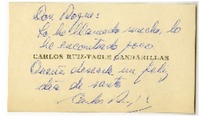 Don Roque:
Lo he llamado mucho, lo
he encontrado poco
CARLOS RUIZ-TAGLE GANDARILLAS
Quería desearle un feliz
día de santo
Carlos